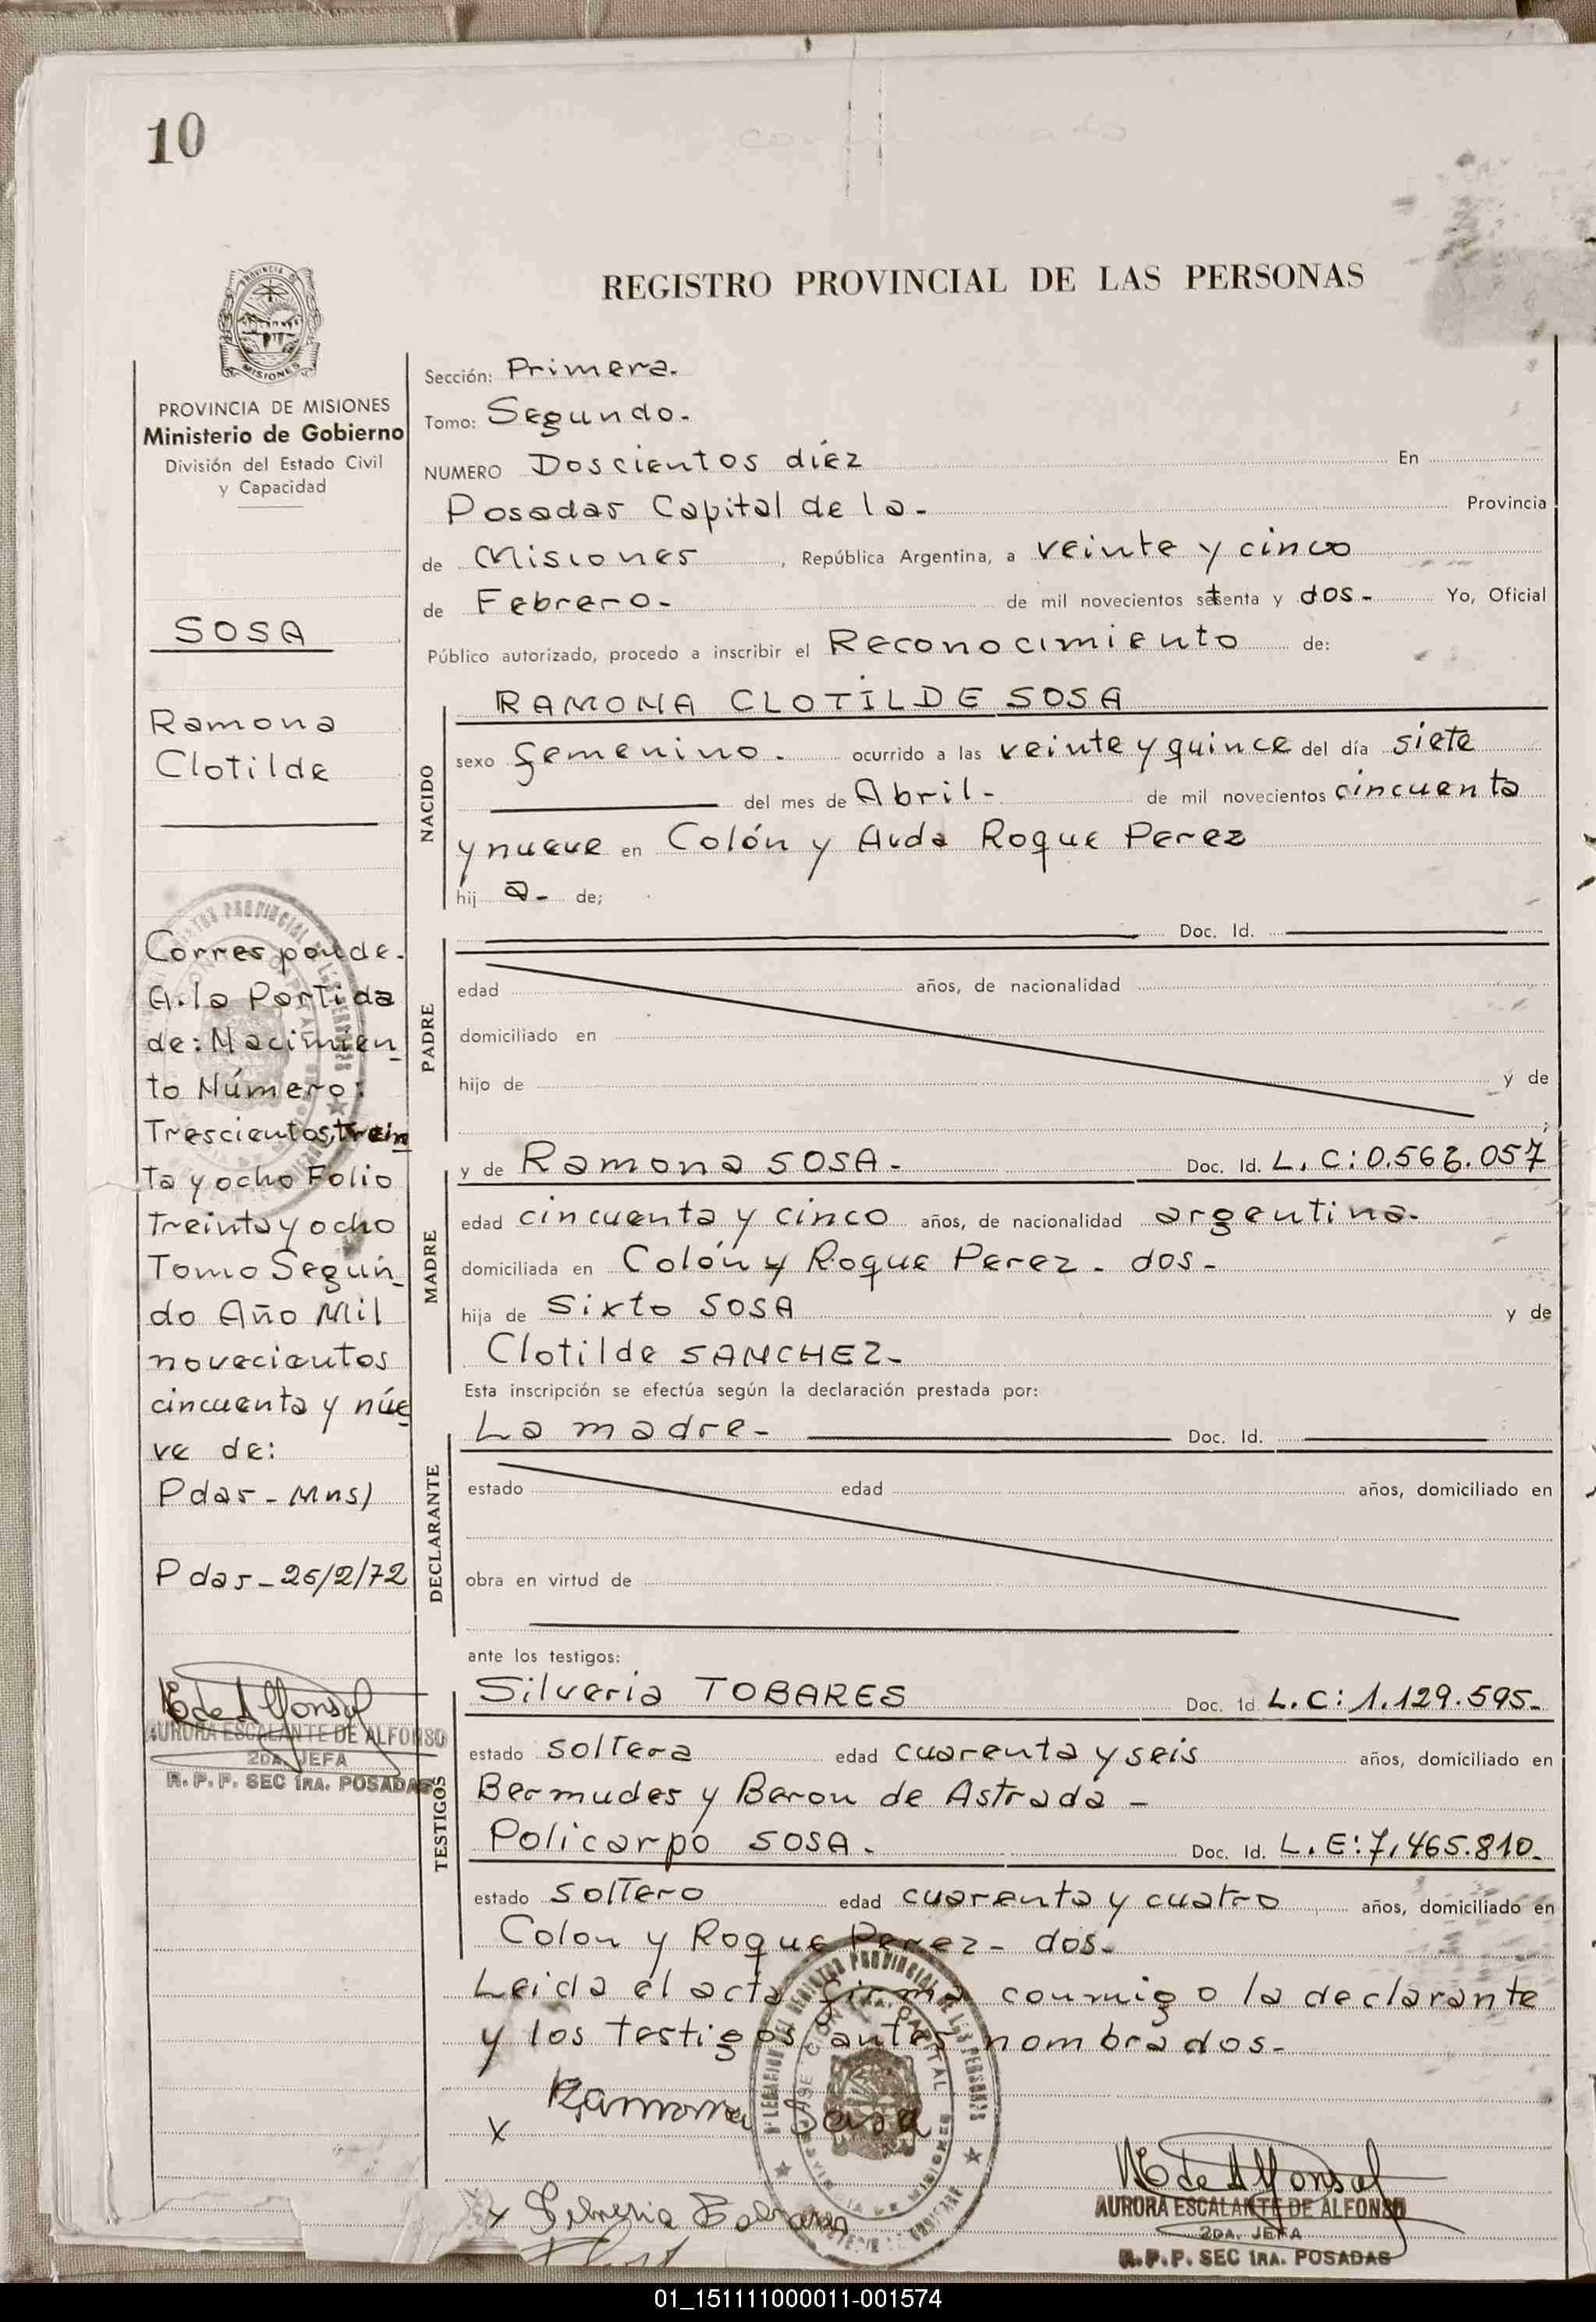 10
REGISTRO PROVINCIAL DE LAS PERSONAS
PROVINCIA DE MISIONES
Ministerio de Gobierno
División del Estado Civil
y Capacidad
SOSA
Ramona
Clotilde
Corresponde.
A.la Partida
de: Nacimien
to Número:
Trescientos,trein
ta y ocho Folio
Treinta y ocho
Tomo Según
do Año Mil
novecientos
cincuenta y núe
ve de:
Pdas - Mns)
Pdas - 25/2/72
AURORA ESCALANTE DE ALFONSO
2DA. JEFA
R. P. P. SEC 1RA. POSADAS
Sección: Primera.
Tomo: Segundo.
NUMERO Doscientos díez En
Posadas Capital de la - Provincia
de Misiones, República Argentina, a veinte y cinco
de Febrero - de mil novecientos setenta y dos - Yo, Oficial
Público autorizado, procedo a inscribir el Reconocimiento de:
NACIDO
RAMONA CLOTILDE SOSA
sexo femenino. ocurrido a las veinte y quince del día siete
del mes de Abril - de mil novecientos cincuenta
y nueve en Colón y Avda Roque Perez
hij a - de;
PADRE
Doc. Id.
edad años, de nacionalidad
domiciliado en
hijo de y de
MADRE
y de Ramona SOSA - Doc. Id. L. C: 0.562.057
edad cincuenta y cinco años, de nacionalidad argentina -
domiciliada en Colón y Roque Perez - dos -
hija de Sixto SOSA y de
Clotilde SANCHEZ -
Esta inscripción se efectúa según la declaración prestada por:
DECLARANTE
La madre - Doc. Id.
estado edad años, domiciliado en
obra en virtud de
ante los testigos:
TESTIGOS
Silveria TOBARES Doc. Id. L. C: 1.129.595 -
estado soltera edad cuarenta y seis años, domiciliado en
Bermudes y Beron de Astrada -
Policarpo SOSA - Doc. Id. L. E: 7,465.810 -
estado soltero edad cuarenta y cuatro años, domiciliado en
Colon y Roque Perez - dos -
Leida el acta firma conmigo la declarante
y los testigos antes nombrados -
x Ramona Sosa
x Silveria Tobares
AURORA ESCALANTE DE ALFONSO
2DA. JEFA
R. P. P. SEC 1RA. POSADAS
01_151111000011-001574